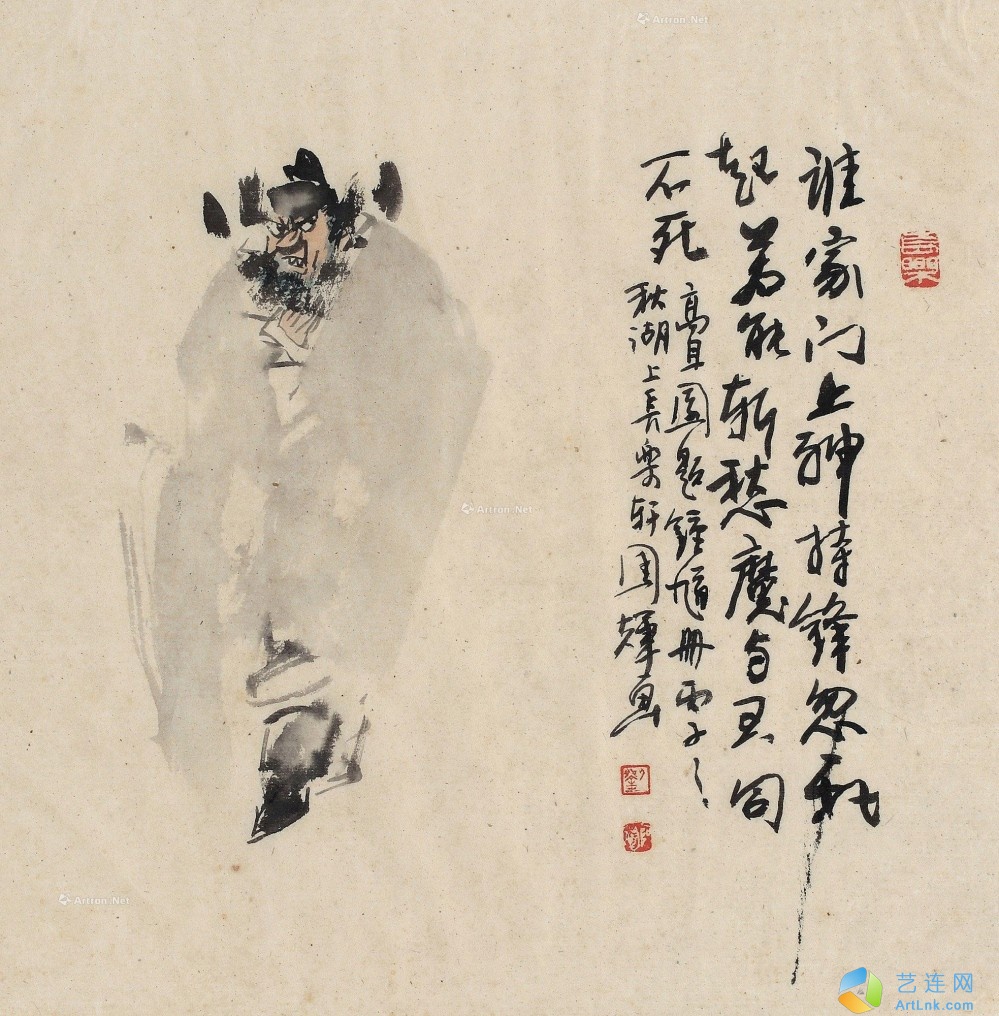 谁家门上神持锋忽
起若能斩愁魔与君同
不死
高且园题钟馗册丙子之
秋湖上长乐轩国辉
艺连网
ArtLnk.com
Artron.Net
Artron.Net
Artron.Net